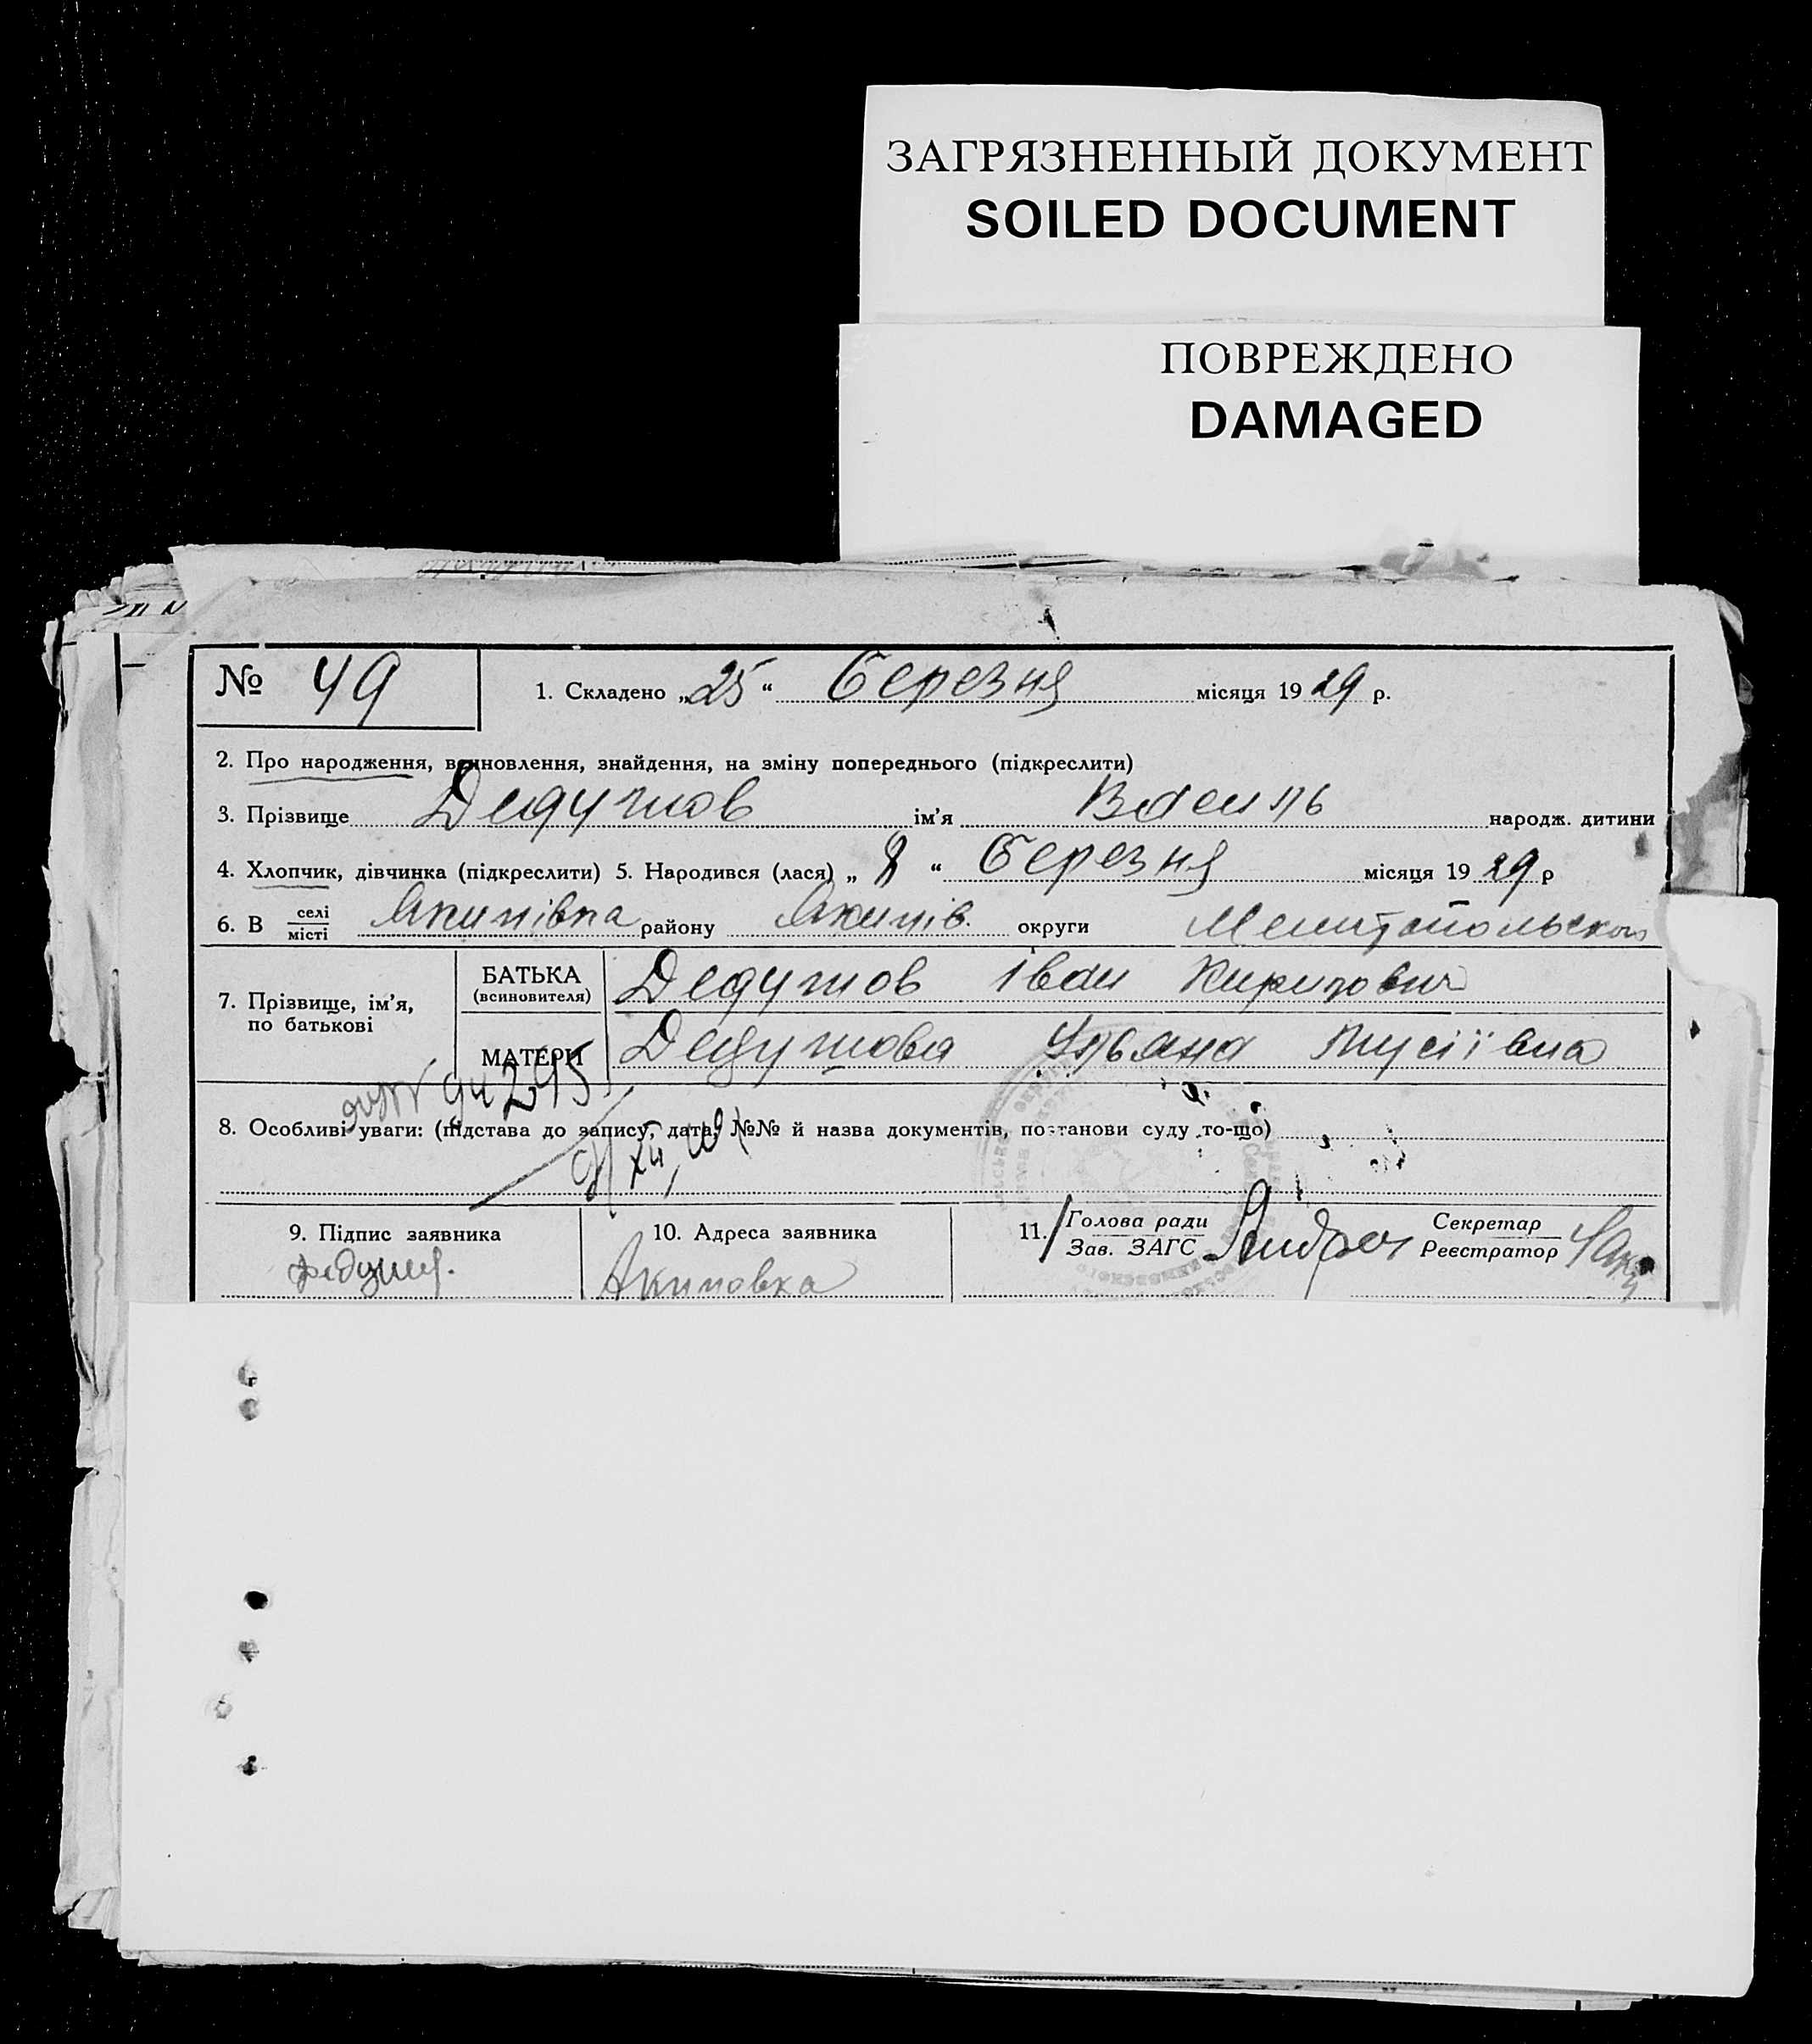 ЗАГРЯЗНЕННЫЙ ДОКУМЕНТ
SOILED DOCUMENT
ПОВРЕЖДЕНО
DAMAGED
№ 49
1. Складено „25“ Березня місяця 1929 р.
2. Про народження, всиновлення, знайдення, на зміну попереднього (підкреслити)
3. Прізвище Дедушов ім'я Василь народж. дитини
4. Хлопчик, дівчинка (підкреслити) 5. Народився (лася) „8“ Березня місяця 1929 р
6. В селі місті Якимівка району Якимів. округи Мелитопольської
7. Прізвище, ім'я, по батькові
БАТЬКА (всиновителя) Дедушов Іван Кирилович
МАТЕРИ Дедушова Ульяна Мусіївна
295
8. Особливі уваги: (підстава до запису, дата, №№ й назва документів, постанови суду то-що)
9. Підпис заявника
10. Адреса заявника
11. Голова ради Зав. ЗАГС
Секретар Реєстратор
Акимовка